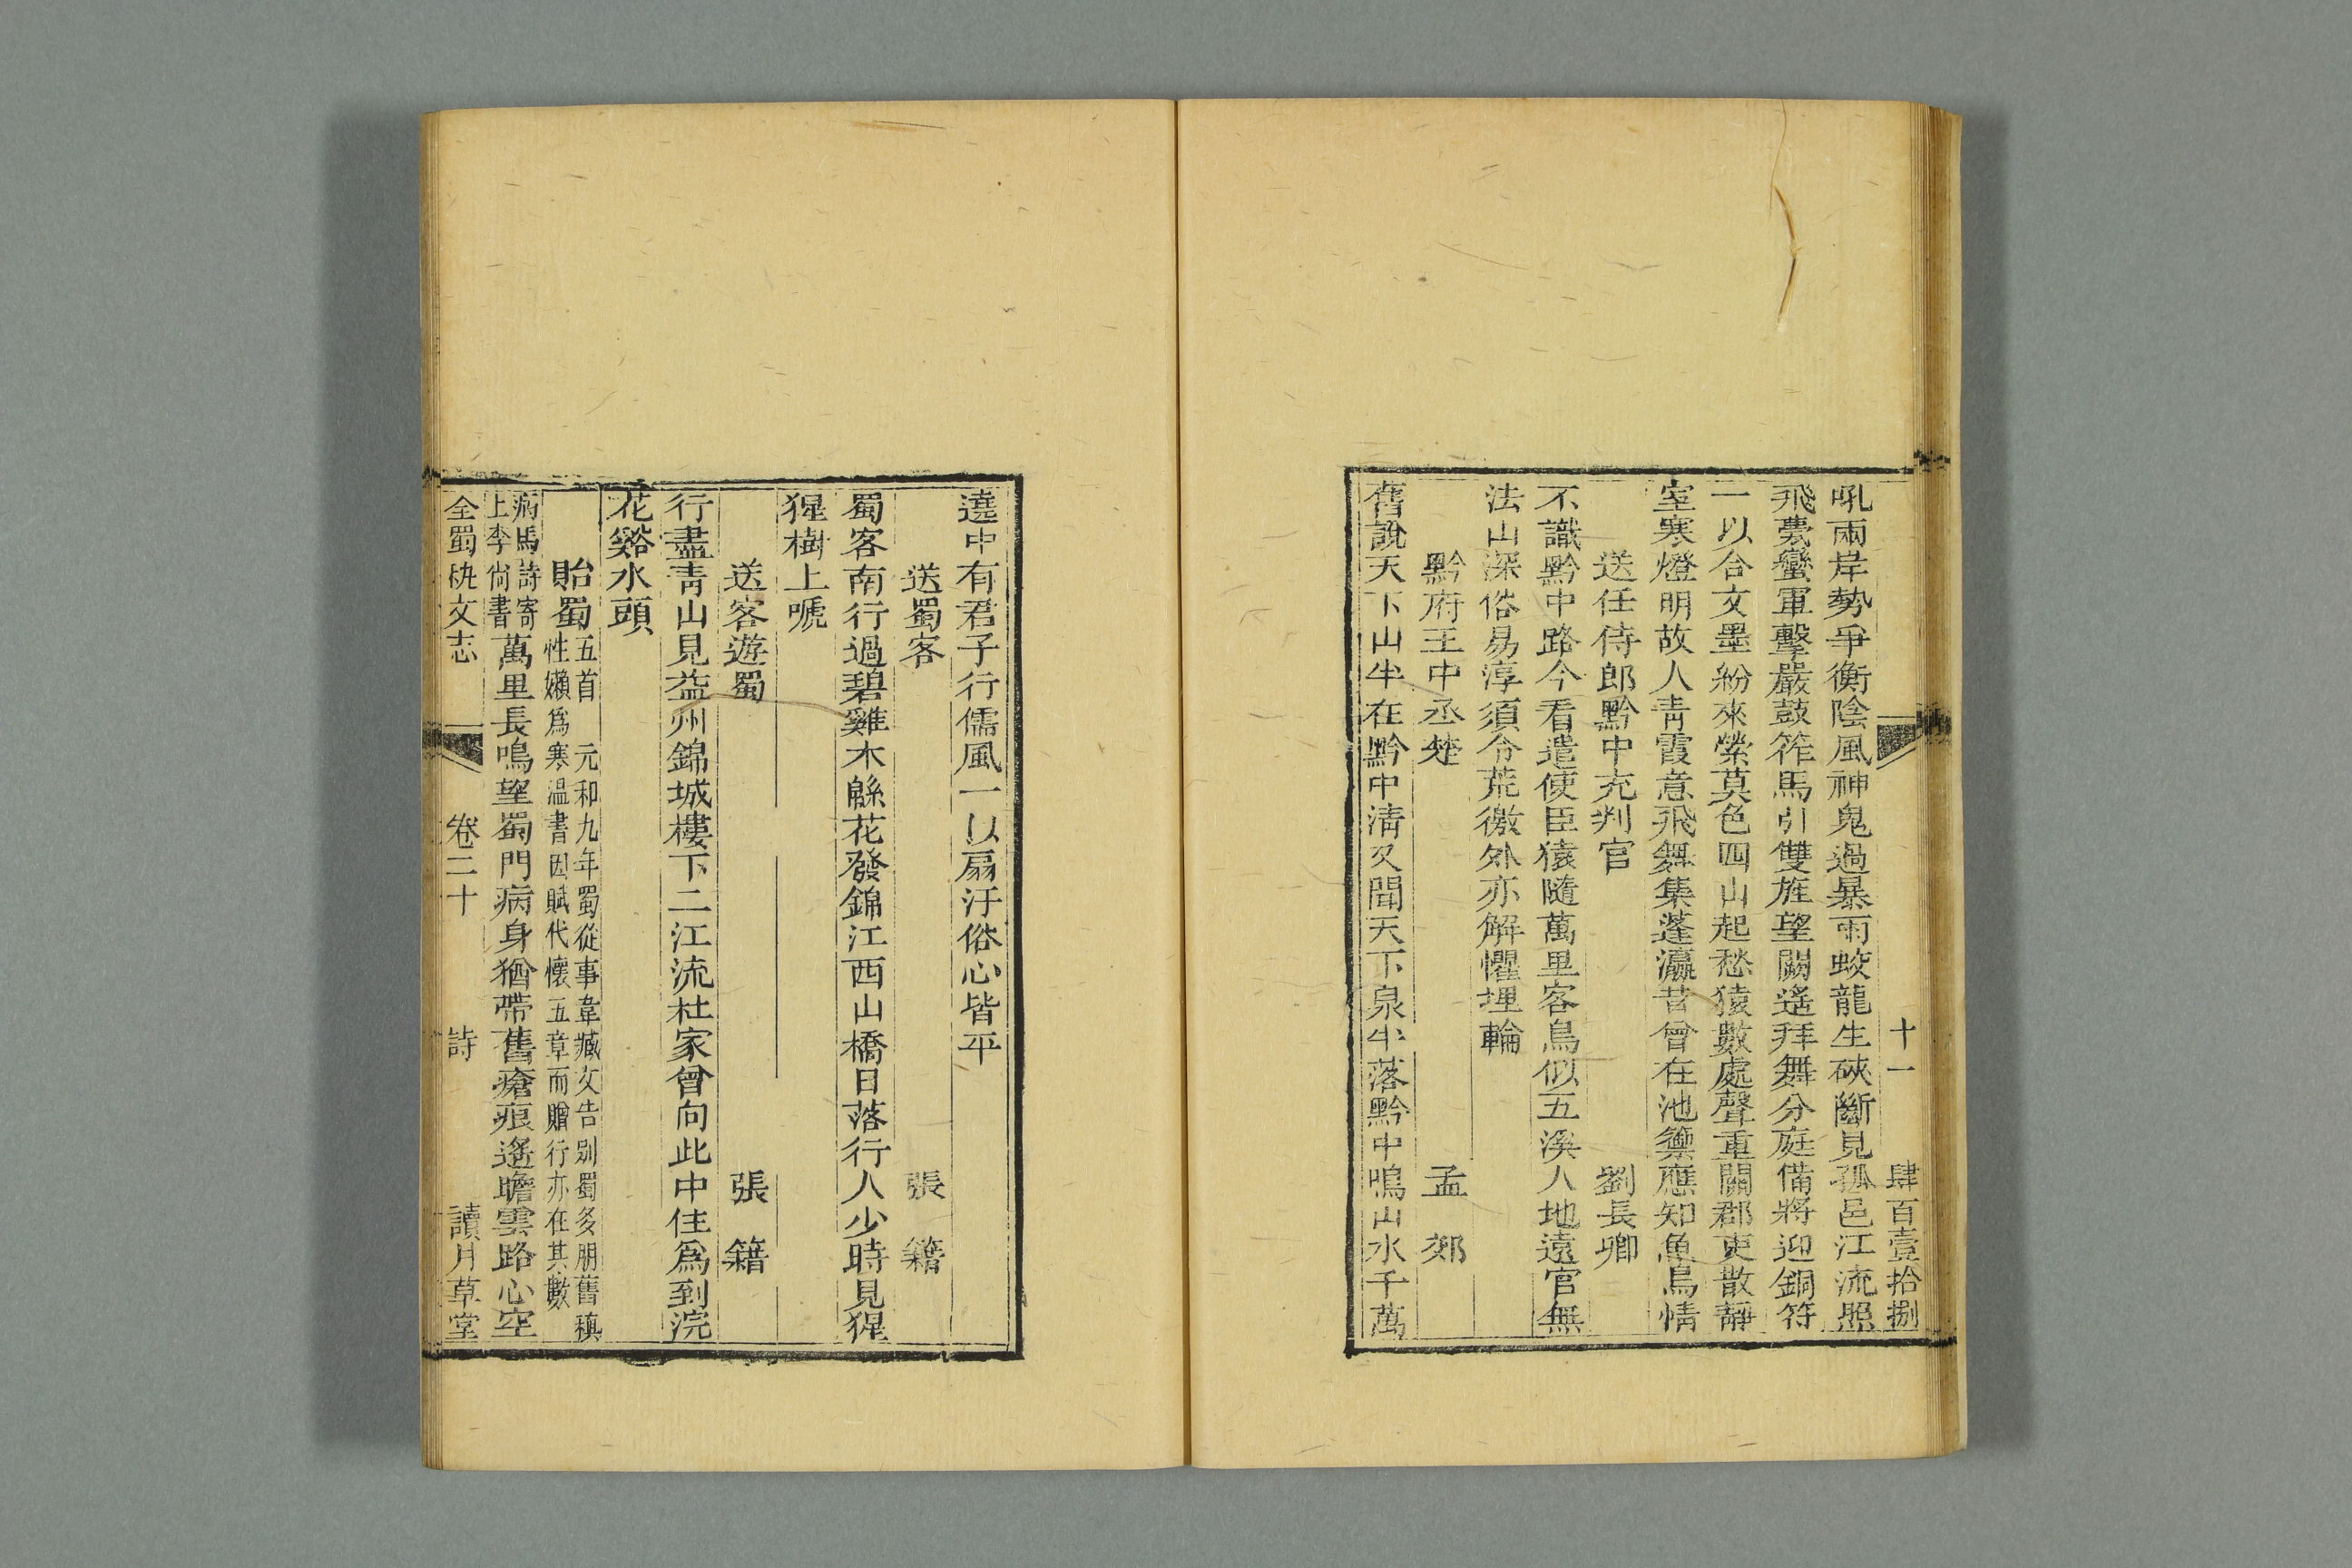 十一　肆百壹拾捌
吼兩岸勢爭衡陰風神鬼過暴雨蛟龍生硤斷見孤邑江流照
飛甍蠻軍擊嚴鼓筰馬引雙旌望闕遙拜舞分庭備將迎銅符
一以合文墨紛來縈莫色四山起愁猿數處聲重關郡吏散靜
室寒燈明故人青霞意飛舞集蓬瀛昔曾在池籞應知魚鳥情
送任侍郎黔中充判官　劉長卿
不識黔中路今看遣使臣猿隨萬里客鳥似五溪人地遠官無
法山深俗易淳須令荒徼外亦解懼埋輪
黔府王中丞楚　孟郊
舊說天下山半在黔中淸又聞天下泉半落黔中鳴山水千萬
遶中有君子行儒風一以扇汙俗心皆平
送蜀客　張籍
蜀客南行過碧雞木緜花發錦江西山橋日落行人少時見猩
猩樹上嗁
送客遊蜀　張籍
行盡青山見益州錦城樓下二江流杜家曾向此中住爲到浣
花谿水頭
貽蜀五首　元和九年蜀從事韋臧文告別蜀多朋舊稹
性嬾爲寒溫書因賦代懷五章而贈行亦在其數
病馬詩寄
上李尙書萬里長鳴望蜀門病身猶帶舊瘡痕遙瞻雲路心空
全蜀秇文志　卷二十　詩　讀月草堂